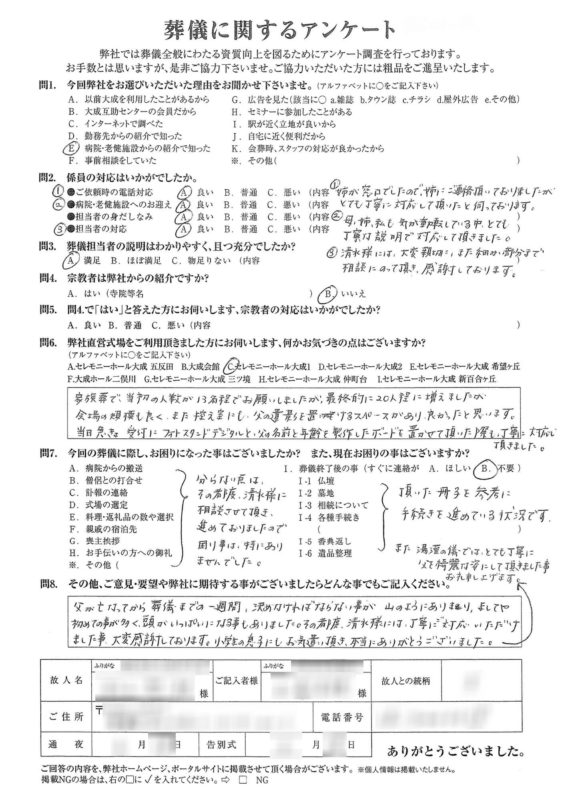 葬儀に関するアンケート
弊社では葬儀全般にわたる資質向上を図るためにアンケート調査を行っております。
お手数とは思いますが、是非ご協力下さいませ。ご協力いただいた方には粗品をご進呈いたします。
問1. 今回弊社をお選びいただいた理由をお聞かせ下さいませ。(アルファベットに○をご記入下さい)
A. 以前大成を利用したことがあるから G. 広告を見た(該当に○ a.雑誌 b.タウン誌 c.チラシ d.屋外広告 e.その他)
B. 大成互助センターの会員だから H. セミナーに参加したことがある
C. インターネットで調べた I. 駅が近く立地が良いから
D. 勤務先からの紹介で知った J. 自宅に近く便利だから
E. 病院・老健施設からの紹介で知った K. 会葬時、スタッフの対応が良かったから
F. 事前相談をしていた ※. その他( )
問2. 係員の対応はいかがでしたか。
① ●ご依頼時の電話対応 A. 良い B. 普通 C. 悪い (内容 ① 姉が窓口でしたので、姉にご連絡頂いておりましたが
② ●病院・老健施設へのお迎え A. 良い B. 普通 C. 悪い (内容 とても丁寧に対応して頂いたと伺っております。
●担当者の身だしなみ A. 良い B. 普通 C. 悪い (内容 ② 母、姉、私も気が動転している中、とても
③ ●担当者の対応 A. 良い B. 普通 C. 悪い (内容 丁寧な説明で対応して頂きました。
問3. 葬儀担当者の説明はわかりやすく、且つ充分でしたか? ③ 清水様には、大変親切に、また細かい部分まで
A. 満足 B. ほぼ満足 C. 物足りない (内容 相談にのって頂き、感謝しております。)
問4. 宗教者は弊社からの紹介ですか?
A. はい (寺院等名 ) B. いいえ
問5. 問4.で「はい」と答えた方にお伺いします、宗教者の対応はいかがでしたか?
A. 良い B. 普通 C. 悪い (内容 )
問6. 弊社直営式場をご利用頂きました方にお伺いします、何かお気づきの点はございますか?
(アルファベットに○をご記入下さい)
A.セレモニーホール大成 五反田 B.大成会館 C.セレモニーホール大成1 D.セレモニーホール大成2 E.セレモニーホール大成 希望ヶ丘
F.大成ホール二俣川 G.セレモニーホール大成 三ツ境 H.セレモニーホール大成 仲町台 I.セレモニーホール大成 新百合ヶ丘
家族葬で、当初の人数が13名程でお願いしましたが、最終的に20人程に増えましたが
会場の規模も良く、また控え室にも、父の遺影を置けるスペースがあり、良かったと思います。
当日急きょ、受付にフォトスタンドデジタルと、父の名前と年齢を製作したボードを置かせて頂いた際も、丁寧に対応して
頂きました。
問7. 今回の葬儀に際し、お困りになった事はございましたか? また、現在お困りの事はございますか?
A. 病院からの搬送 I. 葬儀終了後の事 (すぐに連絡が A. ほしい B. 不要)
B. 僧侶との打合せ I-1 仏壇
C. 訃報の連絡 I-2 墓地
D. 式場の選定 I-3 相続について
E. 料理・返礼品の数や選択 I-4 各種手続き
F. 親戚の宿泊先 ( )
G. 喪主挨拶 I-5 香典返し
H. お手伝いの方への御礼 I-6 遺品整理
※. その他 ( )
分からない点は、
その都度、清水様に
相談させて頂き、
進めておりましたので
困り事は、特にあり
ませんでした。
頂いた冊子を参考に
手続きを進めている状況です。
また湯灌の儀では、とても丁寧に
父を綺麗な姿にして頂きました事
お礼申し上げます。
問8. その他、ご意見・要望や弊社に期待する事がございましたらどんな事でもご記入ください。
父が亡なってから葬儀までの一週間、決めなければならない事が山のようにあり、ましてや
初めての事が多く、頭がいっぱいになる事もありました。その都度、清水様には、丁寧にご対応いただけ
ました事、大変感謝しております。小学生の息子にもお気遣い頂き、本当にありがとうございました。
故人名 ふりがな 様 ご記入者様 ふりがな 様 故人との続柄
ご住所 〒 電話番号
通夜 月 日 告別式 月 日
ありがとうございました。
ご回答の内容を、弊社ホームページ、ポータルサイトに掲載させて頂く場合がございます。 ※個人情報は掲載いたしません。
掲載NGの場合は、右の□に✓を入れてください。⇨ □ NG